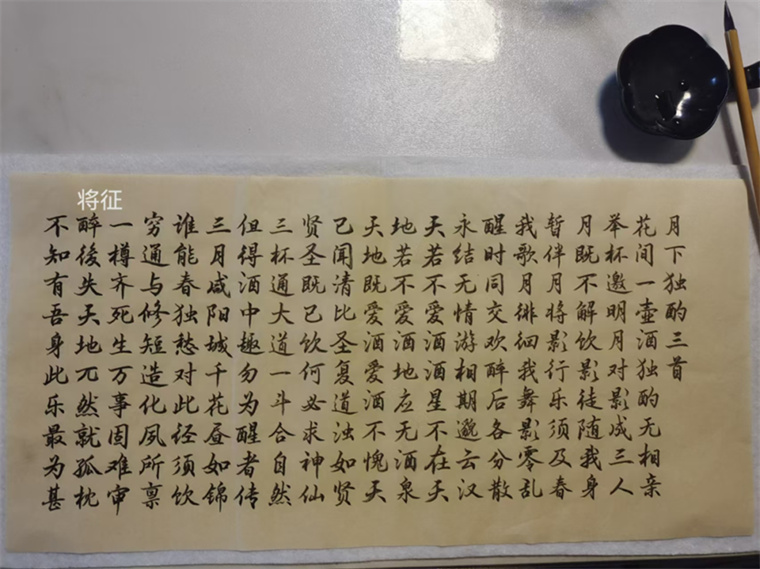 将征
月下独酌三首
花间一壶酒独酌无相亲
举杯邀明月对影成三人
月既不解饮影徒随我身
暂伴月将影行乐须及春
我歌月徘徊我舞影零乱
醒时同交欢醉后各分散
永结无情游相期邈云汉
天若不爱酒酒星不在天
地若不爱酒地应无酒泉
天地既爱酒爱酒不愧天
已闻清比圣复道浊如贤
贤圣既已饮何必求神仙
三杯通大道一斗合自然
但得酒中趣勿为醒者传
三月咸阳城千花昼如锦
谁能春独愁对此经须饮
穷通与修短造化夙所禀
一樽齐死生万事固难审
醉後失天地兀然就孤枕
不知有吾身此乐最为甚